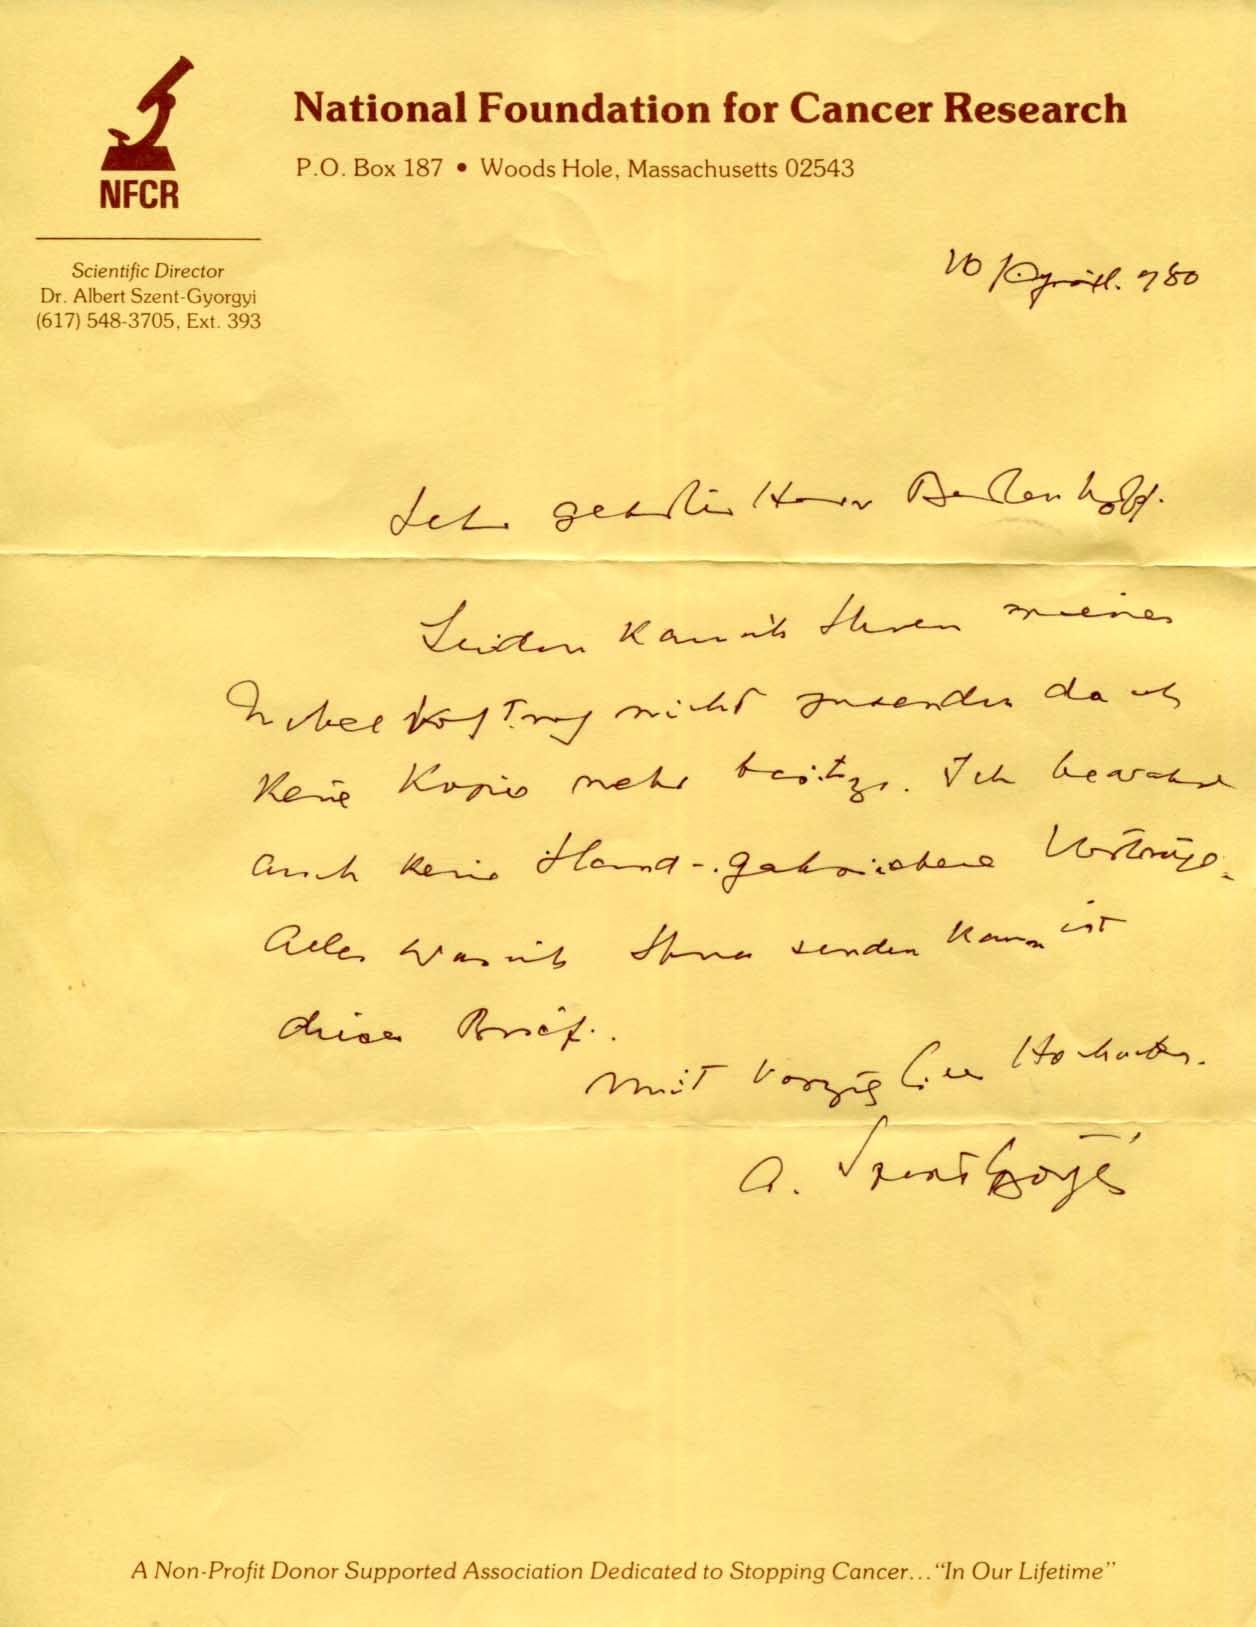 National Foundation for Cancer Research
P.O. Box 187 • Woods Hole, Massachusetts 02543
NFCR
Scientific Director
Dr. Albert Szent-Gyorgyi
(617) 548-3705, Ext. 393
10 April. 980
Sehr geehrter Herr
Leider kann ich Ihnen meinen
Nobel Vortrag nicht zusenden da ich
keine Kopie mehr besitze. Ich bewahre
auch keine Hand-geschriebene Vorträge.
Alles was ich Ihnen senden kann ist
dieser Brief.
Mit vorzüglicher Hochacht.
A. Szent Györgyi
A Non-Profit Donor Supported Association Dedicated to Stopping Cancer... "In Our Lifetime"